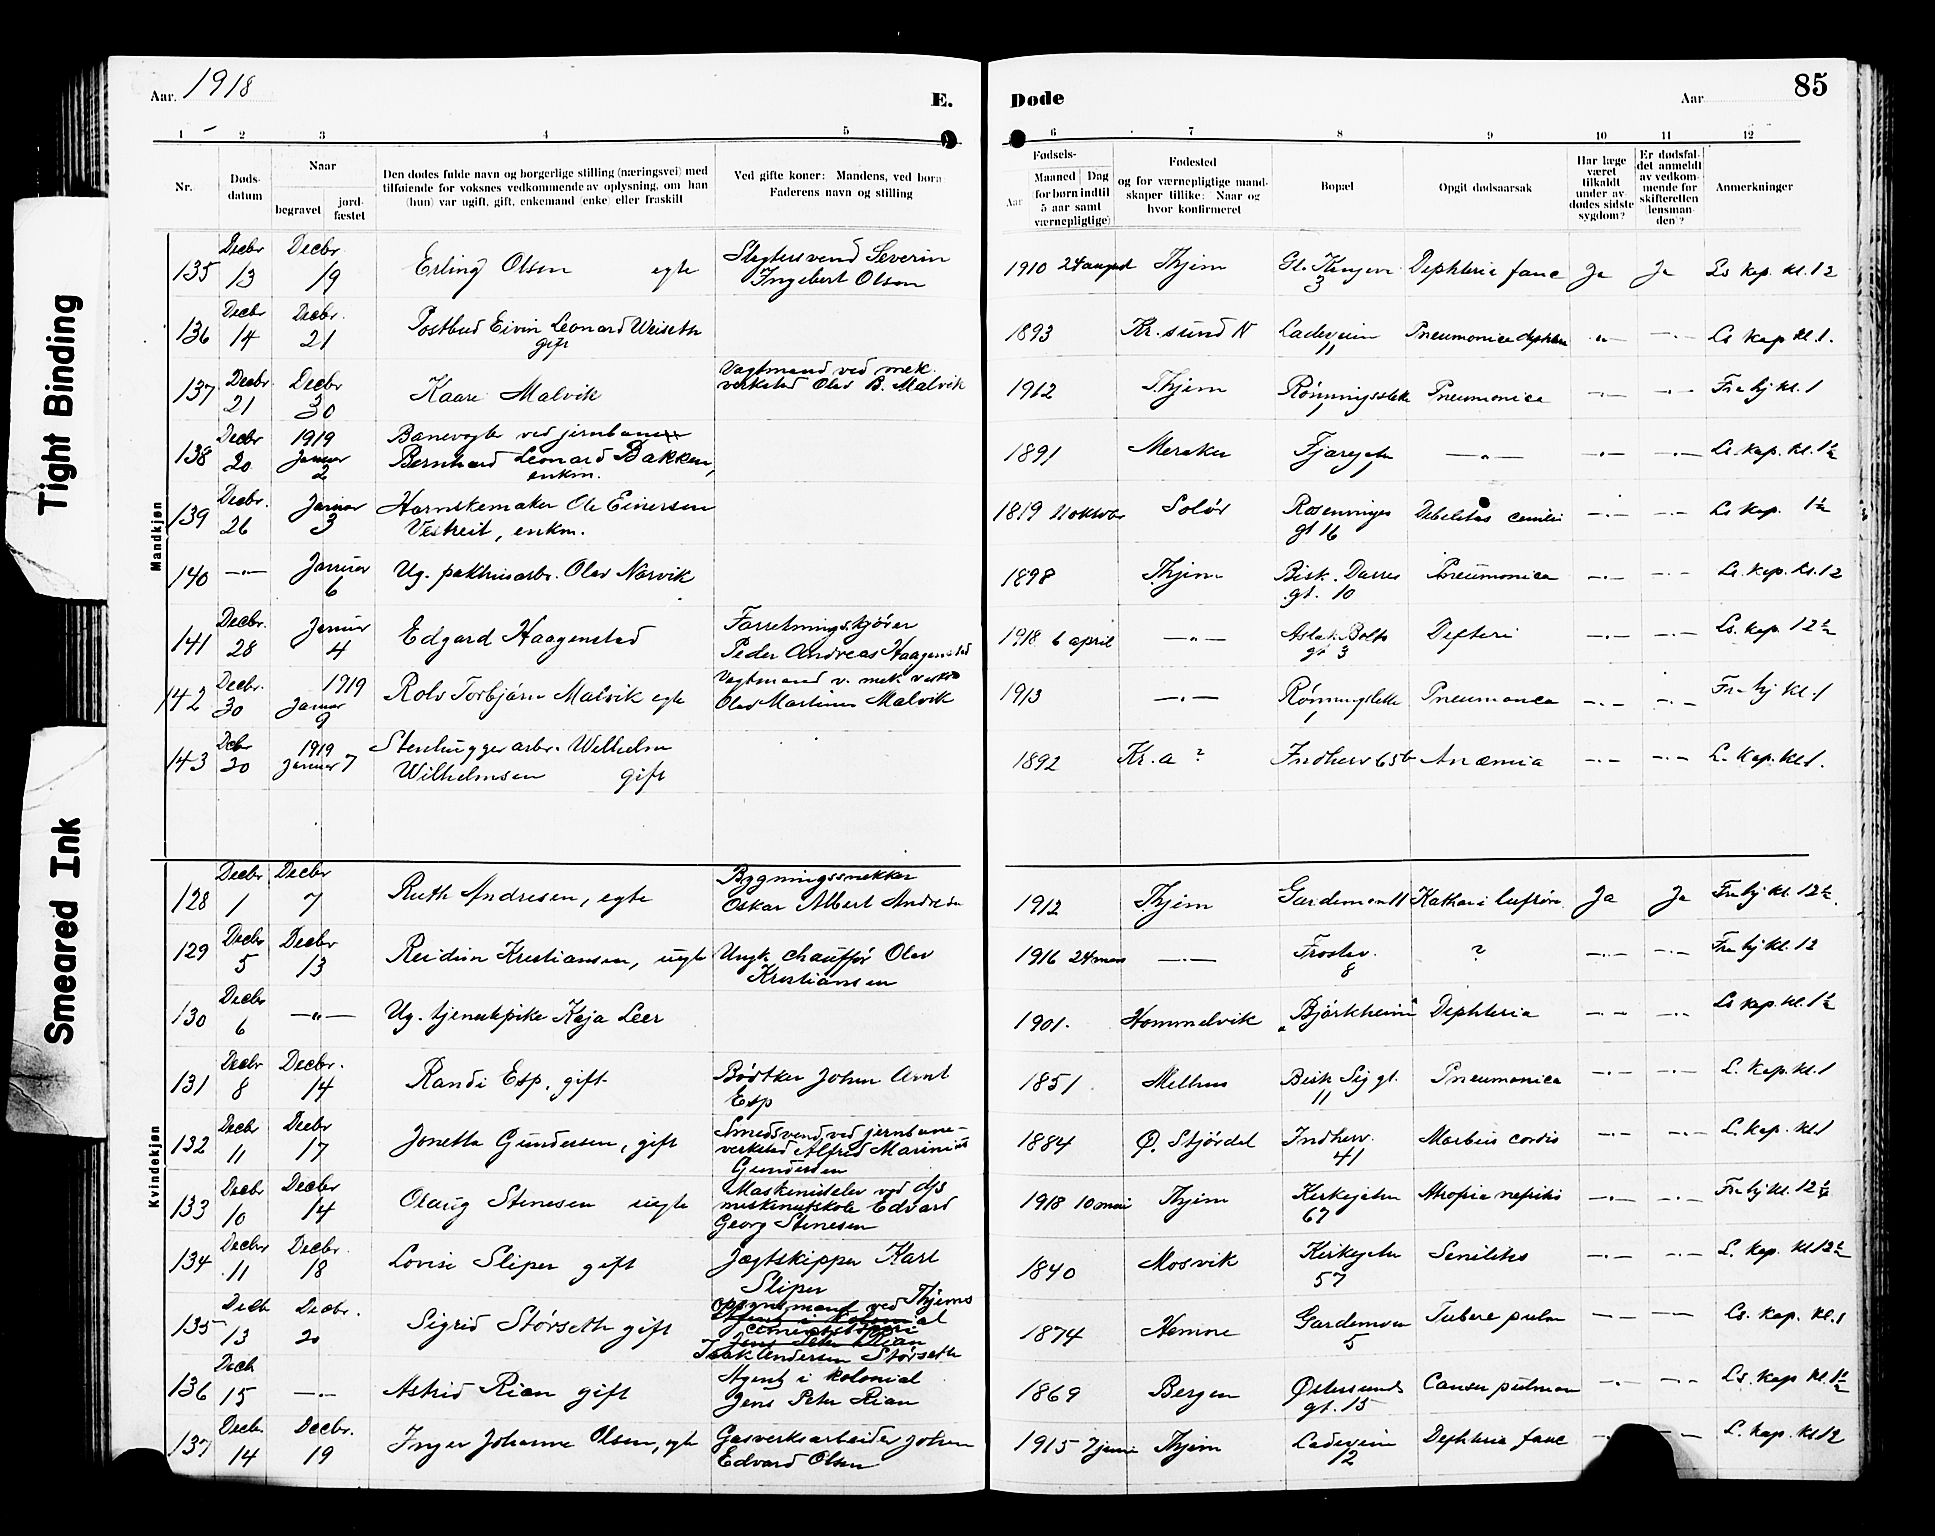 Tight Binding
Smeared Ink
Aar. 1918
E.
Døde
Aar
85
1 2 3 4 5 6 7 8 9 10 11 12
Nr.
Døds-
datum
Naar
begravet
jord-
fæstet
Den dødes fulde navn og borgerlige stilling (næringsvei) med
tilføiende for voksnes vedkommende av oplysning, om han
(hun) var ugift, gift, enkemand (enke) eller fraskilt
Ved gifte koner: Mandens, ved børn
Faderens navn og stilling
Fødsels-
Aar
Maaned Dag
for børn indtil
5 aar samt
værnepligtige)
Fødested
og for værnepligtige mand-
skaper tillike: Naar og
hvor konfirmeret
Bopæl
Opgit dødsaarsak
Har læge
været
tilkaldt
under av-
dødes sidste
sygdom?
Er dødsfal-
det anmeldt
av vedkom-
mende for
skifteretten
(lensman-
den)?
Anmerkninger
Mandkjøn
135 Decbr 13 Decbr 19 Erling Olsen egte Slagtersvend Severin
Ingebert Olsen 1910 24 august Thjem 3 Ja Ja Ls kap. kl. 12
136 Decbr 14 Decbr. 21 Postbud Eivin Leonard Weiseth
gift 1893 Kr. sund N Ladeveien
11 Ls kap kl 1.
137 Decbr. 21 Decbr 30 Kaare Malvik Vagtmand ved mek.
verksted Olav B. Malvik 1912 Thjem 1 Pneumonica Fra hj kl. 1
138 Decbr 20 1919 Januar 2 Banevogter ved jernbanen
Bernhard Leonard Bakken,
enkm. 1891 Meraker 1 Ls. kap. kl. 1½
139 Decbr. 26 Januar 3 Harnskemaker Ole Einersen
Vestreit, enkm. 1819 11 oktobr Solør
gt 16 Ls kap. 1½
140 Januar 6 Ug. pakhusarb. Olav Narvik 1898 Thjem Bisk. Darres
gt. 10 Pneumonica Ls. kap. kl. 12
141 Decbr. 28 Januar 4 Edgard Haagenstad Forretningskjører
Peder Andreas Haagenstad 1918 6 april Aslak Bolts
gt 3 Defteri Ls. kap. 12½
142 Decbr. 30 1919 Januar 9 Rolv Torbjørn Malvik egte Vagtmand v. mek. verkst
Olav Martinus Malvik 1913 1 Pneumonica Fra hj kl. 1
143 Decbr 30 1919 Januar 7 Stenhuggerarb. Wilhelm
Wilhelmsen gift 1892 Kr. a ? Indherv 65b Anæmia L. kap. kl 1.
Kvindekjøn
128 Decbr 1 Decbr 7 Ruth Andresen, egte Bygningssnekker
Oskar Albert Andresen 1912 Thjem Gardemoen 11 Ja Ja Fra hj kl. 12½
129 Decbr 5 Decbr 13 Reidun Kristiansen, uegte Ungk. chauffør Olav
Kristiansen 1916 24 mars 8 ? Fra hj kl. 12
130 Decbr 6 Ug. tjenestepike Kaja Leer 1901. Hommelvik "Bjørkheim" Dephteria Ls kap. kl. 1½
131 Decbr 8 Decbr. 14 Randi Esp. gift Bødker Johan Arnt
Esp 1851 Melhus Bisk Sig gt.
11 Pneumonica L. kap. kl. 1
132 Decbr 11 Decbr 17 Jonetta Gundersen, gift Smedsvend ved jernbane-
verksted Alfred Marinius
Gundersen 1884 Ø. Stjørdal Indherv.
41 Morbus cordis L. kap. kl 1
133 Decbr 10 Decbr 14 Olaug Stenesen uegte Maskinistelev ved d/s
maskinistskole Edvard
Georg Stenesen 1918 10 mai Thjem Kirkegaten
67 Fra hj kl. 12½
134 Decbr 11 Decbr. 18 Lovise Sliper gift Jægtskipper Karl
Sliper 1840 Mosvik Kirkegaten
57 Senilitas L. kap. kl 12½
135 Decbr 13 Decbr. 20 Sigrid Størseth gift Opsynsmand ved Thjems
Agent i kolonial
Jens Peter Rian
Isak Andersen Størseth 1874 Hemne Gardemoen
5 Ls. kap. kl. 1
136 Decb 15 Astrid Rian gift Agent i kolonial
Jens Peter Rian 1869 Bergen Østersunds
gt. 15 Ls. kap kl. 1½
137 Decbr 14 Decbr. 19 Inger Johanne Olsen, egte Gasverksarbeider Johan
Edvard Olsen 1915 Thjem Ladeveien
12 Dephteria fauc L. kap. kl 12